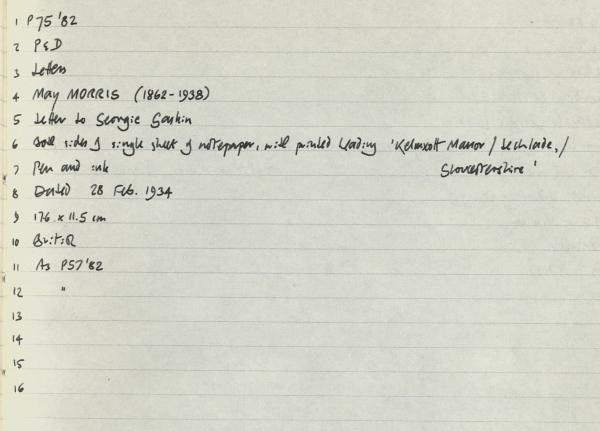 1 P75'82
2 P&D
3 Letters
4 May MORRIS (1862-1938)
5 Letter to Georgie Gaskin
6 Both sides of single sheet of notepaper, with printed heading 'Kelmscott Manor / Lechlade, /
7 Pen and ink Gloucestershire'
8 Dated 28 Feb. 1934
9 17.6 x 11.5 cm
10 British
11 As P57'82
12 "
13
14
15
16